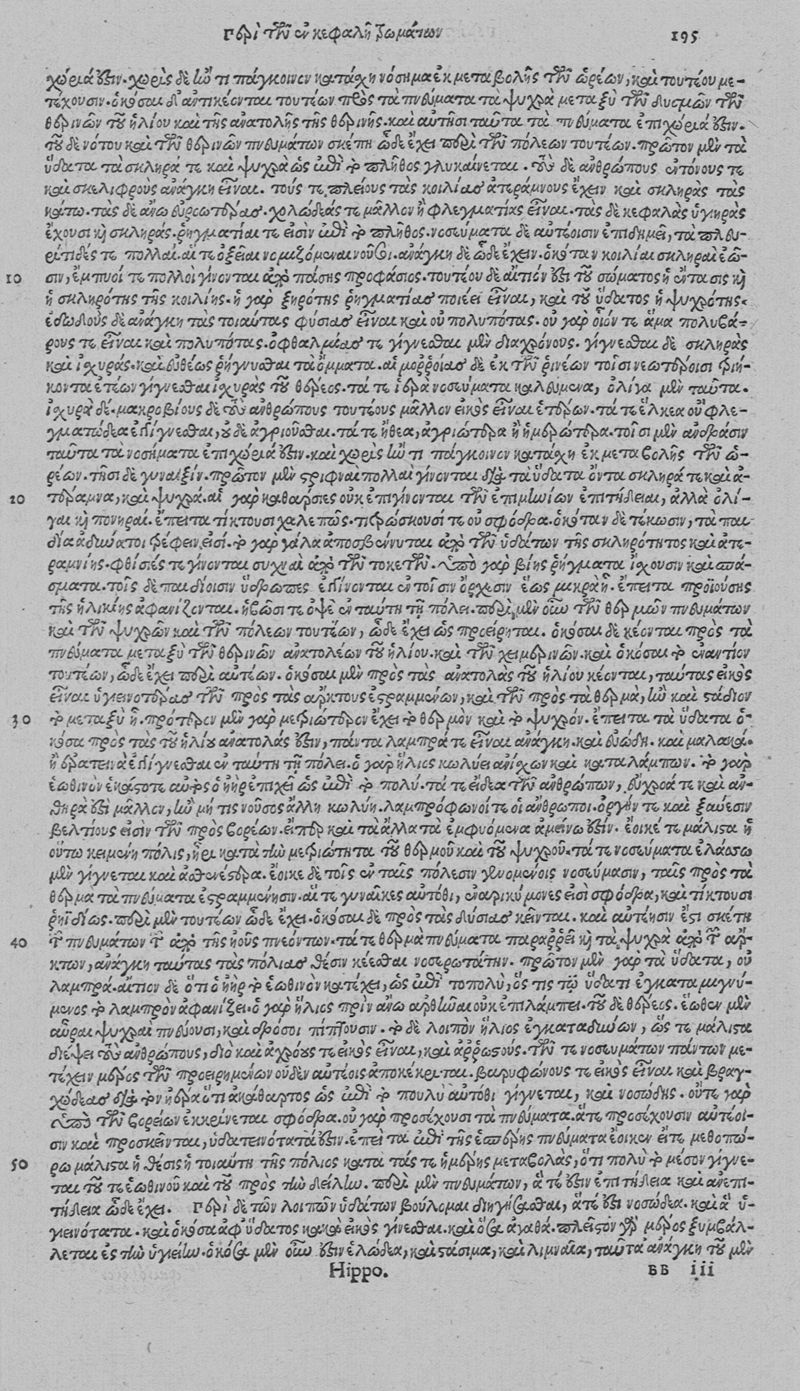 Περὶ τῶν ἐν κεφαλῇ τρωμάτων 195
χώριά ἐστιν. χωρὶς δὲ ἢν τι πάγκοινον κατάσχῃ νόσημα ἐκ μεταβολῆς τῶν ὡρέων, καὶ τουτέου με-
τέχουσιν. ὁκόσαι δ' ἀντικέονται τουτέων πρὸς τὰ πνεύματα τὰ ψυχρὰ μεταξὺ τῶν δυσμῶν τῶν
θερινῶν τοῦ ἡλίου καὶ τῆς ἀνατολῆς τῆς θερινῆς. καὶ αὐτῇσι ταῦτα τὰ πνεύματα ἐπιχώριά ἐστιν.
τοῦ δὲ νότου καὶ τῶν θερινῶν πνευμάτων σκέπη ὧδε ἔχει περὶ τῶν πόλεων τουτέων. πρῶτον μὲν τὰ
ὕδατα τὰ σκληρά τε καὶ ψυχρὰ ὡς ἐπὶ τὸ πλῆθος γλυκαίνεται. τοὺς δὲ ἀνθρώπους εὐτόνους τε
καὶ σκελιφροὺς ἀνάγκη εἶναι. τούς τε πλείους τὰς κοιλίας ἀτεράμνους ἔχειν καὶ σκληρὰς τὰς
κάτω. τὰς δὲ ἄνω εὐρωτέρας. χολώδεάς τε μᾶλλον ἢ φλεγματίας εἶναι. τὰς δὲ κεφαλὰς ὑγιηρὰς
ἔχουσι καὶ σκληράς. ῥηγματίαι τε εἰσὶν ἐπὶ τὸ πλῆθος. νοσεύματα δὲ αὐτέοισιν ἐπιδημέει, τὰ πλευ-
ρίτιδές τε πολλαί. αἵ τε ὀξεῖαι νομιζόμεναι νοῦσοι. ἀνάγκη δὲ ὧδε ἔχειν. ὁκόταν κοιλίαι σκληραὶ ἔω-
10 σιν, ἔμπυοί τε πολλοὶ γίνονται ἀπὸ πάσης προφάσιος. τουτέου δὲ αἴτιόν ἐστι τοῦ σώματος ἡ ἔντασις καὶ
ἡ σκληρότης τῆς κοιλίης. ἡ γὰρ ξηρότης ῥηγματίας ποιέει εἶναι, καὶ τοῦ ὕδατος ἡ ψυχρότης.
ἐδωδοὺς δὲ ἀνάγκη τὰς τοιαύτας φύσιας εἶναι καὶ οὐ πολυπότας. οὐ γὰρ οἷόν τε ἅμα πολυβό-
ρους τε εἶναι καὶ πολυπότας. ὀφθαλμίας τε γίγνεσθαι μὲν διαχρόνους. γίγνεσθαι δὲ σκληρὰς
καὶ ἰσχυράς. καὶ εὐθέως ῥήγνυσθαι τὰ ὄμματα. αἱμορροίας δὲ ἐκ τῶν ῥινέων τοῖσι νεωτέροισι τριή-
κοντα ἐτέων γίγνεσθαι ἰσχυρὰς τοῦ θέρεος. τά τε ἱερὰ νοσεύματα καλεύμενα, ὀλίγα μὲν ταῦτα.
ἰσχυρὰ δέ. μακροβίους δὲ τοὺς ἀνθρώπους τουτέους μᾶλλον εἰκὸς εἶναι ἑτέρων. τά τε ἕλκεα οὐ φλε-
γματώδεα ἐγγίγνεσθαι, οὐδὲ ἀγριοῦσθαι. τά τε ἤθεα, ἀγριώτερα ἢ ἡμερώτερα. τοῖσι μὲν ἀνδράσιν
ταῦτα τὰ νοσήματα ἐπιχώριά ἐστιν. καὶ χωρὶς ἢν τι πάγκοινον κατάσχῃ ἐκ μεταβολῆς τῶν ὡ-
ρέων. τῇσι δὲ γυναιξίν. πρῶτον μὲν στριφναὶ πολλαὶ γίνονται διὰ τὰ ὕδατα ὄντα σκληρά τε καὶ ἀ-
20 τέραμνα, καὶ ψυχρά. αἱ γὰρ καθάρσιες οὐκ ἐπιγίνονται τῶν ἐπιμηνίων ἐπιτήδειαι, ἀλλὰ ὀλί-
γαι καὶ πονηραί. ἔπειτα τίκτουσι χαλεπῶς. τιτρώσκουσί τε οὐ σφόδρα. ὁκόταν δὲ τέκωσιν, τὰ παι-
δία ἀδύνατοι τρέφειν εἰσί. τὸ γὰρ γάλα ἀποσβέννυται ἀπὸ τῶν ὑδάτων τῆς σκληρότητος καὶ ἀτε-
ραμνίης. φθίσιές τε γίνονται συχναὶ ἀπὸ τῶν τοκετῶν. ὑπὸ γὰρ βίης ῥήγματα ἴσχουσιν καὶ σπά-
σματα. τοῖς δὲ παιδίοισιν ὕδρωπες ἐγγίνονται ἐν τοῖσιν ὄρχεσιν ἕως μικρὰ ᾖ. ἔπειτα προϊούσης
τῆς ἡλικίης ἀφανίζονται. ἡβῶσί τε ὀψὲ ἐν ταύτῃ τῇ πόλει. περὶ μὲν οὖν τῶν θερμῶν πνευμάτων
καὶ τῶν ψυχρῶν καὶ τῶν πόλεων τουτέων, ὧδε ἔχει ὡς προείρηται. ὁκόσαι δὲ κέονται πρὸς τὰ
πνεύματα μεταξὺ τῶν θερινῶν ἀνατολέων τοῦ ἡλίου. καὶ τῶν χειμερινῶν. καὶ ὁκόσαι τὸ ἐναντίον
τουτέων, ὧδε ἔχει περὶ αὐτέων. ὁκόσαι μὲν πρὸς τὰς ἀνατολὰς τοῦ ἡλίου κέονται, ταύτας εἰκὸς
εἶναι ὑγιεινοτέρας τῶν πρὸς τὰς ἄρκτους ἐστραμμένων, καὶ τῶν πρὸς τὰ θερμά, ἢν καὶ στάδιον
30 τὸ μεταξὺ ᾖ. πρότερον μὲν γὰρ μετριώτερον ἔχει τὸ θερμὸν καὶ τὸ ψυχρόν. ἔπειτα τὰ ὕδατα ὁ-
κόσα πρὸς τὰς τοῦ ἡλίου ἀνατολάς ἐστιν, πάντα λαμπρά τε εἶναι ἀνάγκη. καὶ εὐώδη. καὶ μαλακά.
ἢ ἐρατεινὰ ἐγγίγνεσθαι ἐν ταύτῃ τῇ πόλει. ὁ γὰρ ἥλιος κωλύει ἀνίσχων καὶ καταλάμπων. τὸ γὰρ
ἑωθινὸν ἑκάστοτε αὐτὸς ὁ ἠὴρ ἐπέχει ὡς ἐπὶ τὸ πολύ. τά τε εἴδεα τῶν ἀνθρώπων, εὔχροά τε καὶ ἀν-
θηρά ἐστι μᾶλλον, ἢν μή τις νοῦσος ἄλλη κωλύῃ. λαμπρόφωνοί τε οἱ ἄνθρωποι. ὀργήν τε καὶ ξύνεσιν
βελτίους εἰσὶν τῶν πρὸς βορέων. εἵπερ καὶ τὰ ἄλλα τὰ ἐμφυόμενα ἀμείνω ἐστίν. ἔοικέ τε μάλιστα ἡ
οὕτω κειμένη πόλις, ἦρι κατὰ τὴν μετριότητα τοῦ θερμοῦ καὶ τοῦ ψυχροῦ. τά τε νοσεύματα ἐλάσσω
μὲν γίγνεται καὶ ἀσθενέστερα. ἔοικε δὲ τοῖς ἐν ταῖς πόλεσιν γινομένοις νοσεύμασιν, ταῖς πρὸς τὰ
θερμὰ τὰ πνεύματα ἐστραμμένῃσιν. αἵ τε γυναῖκες αὐτόθι, ἐναρικύμονες εἰσὶ σφόδρα, καὶ τίκτουσι
ῥηϊδίως. περὶ μὲν τουτέων ὧδε ἔχει. ὁκόσαι δὲ πρὸς τὰς δύσιας κεῖνται. καὶ αὐτέῃσίν ἐστι σκέπη
40 τῶν πνευμάτων τῶν ἀπὸ τῆς ἠοῦς πνεόντων. τά τε θερμὰ πνεύματα παραρρεῖ καὶ τὰ ψυχρὰ ἀπὸ τῶν ἄρ-
κτων, ἀνάγκη ταύτας τὰς πόλιας θέσιν κέεσθαι νοσερωτάτην. πρῶτον μὲν γὰρ τὰ ὕδατα, οὐ
λαμπρά. αἴτιον δὲ ὅτι ὁ ἠὴρ τὸ ἑωθινὸν κατέχει, ὡς ἐπὶ τοπολύ, ὅς τις τῷ ὕδατι ἐγκαταμιγνύ-
μενος τὸ λαμπρὸν ἀφανίζει. ὁ γὰρ ἥλιος πρὶν ἄνω ἀρθῆναι οὐκ ἐπιλάμπει. τοῦ δὲ θέρεος. ἕωθεν μὲν
αὖραι ψυχραὶ πνέουσι, καὶ δρόσοι πίπτουσιν. τὸ δὲ λοιπὸν ἥλιος ἐγκαταδύνων, ὥς τε μάλιστα
διέψει τοὺς ἀνθρώπους, διὸ καὶ ἀχρόους τε εἰκὸς εἶναι, καὶ ἀρρώστους. τῶν τε νοσευμάτων πάντων με-
τέχειν μέρος τῶν προειρημένων οὐδὲν αὐτέοις ἀποκέκριται. βαρυφώνους τε εἰκὸς εἶναι καὶ βραγ-
χώδεας διὰ τὸν ἠέρα ὅτι ἀκάθαρτος ὡς ἐπὶ τὸ πουλὺ αὐτόθι γίγνεται, καὶ νοσώδης. οὔτε γὰρ
ὑπὸ τῶν βορείων ἐκκρίνεται σφόδρα. οὐ γὰρ προσίχουσι τὰ πνεύματα. ἅτε προσέχουσιν αὐτέοι-
σιν καὶ προσκεῖνται, ὑδατεινότατά ἐστιν. ἐπεὶ τὰ ἐπὶ τῆς ἑσπέρης πνεύματα ἔοικεν εἴτε μεθοπώ-
50 ρῳ μάλιστα ἡ θέσις ἡ τοιαύτη τῆς πόλιος κατὰ τάς τε ἡμέρης μεταβολάς, ὅτι πολὺ τὸ μέσον γίγνε-
ται τοῦ τε ἑωθινοῦ καὶ τοῦ πρὸς τὴν δείλην. περὶ μὲν πνευμάτων, ἅ τέ ἐστιν ἐπιτήδεια καὶ ἀνεπι-
τήδεια ὧδε ἔχει. Περὶ δὲ τῶν λοιπῶν ὑδάτων βούλομαι διηγήσασθαι, ἅ τέ ἐστι νοσώδεα. καὶ ἃ ὑ-
γιεινότατα. καὶ ὁκόσα ἀφ' ὕδατος κακὰ εἰκὸς γίνεσθαι. καὶ ὅσα ἀγαθά. πλεῖστον γὰρ μέρος ξυμβάλ-
λεται ἐς τὴν ὑγιείην. ὁκόσα μὲν οὖν ἐστιν ἑλώδεα, καὶ στάσιμα, καὶ λιμναῖα, ταῦτα ἀνάγκη τοῦ μὲν
Hippo. BB iii